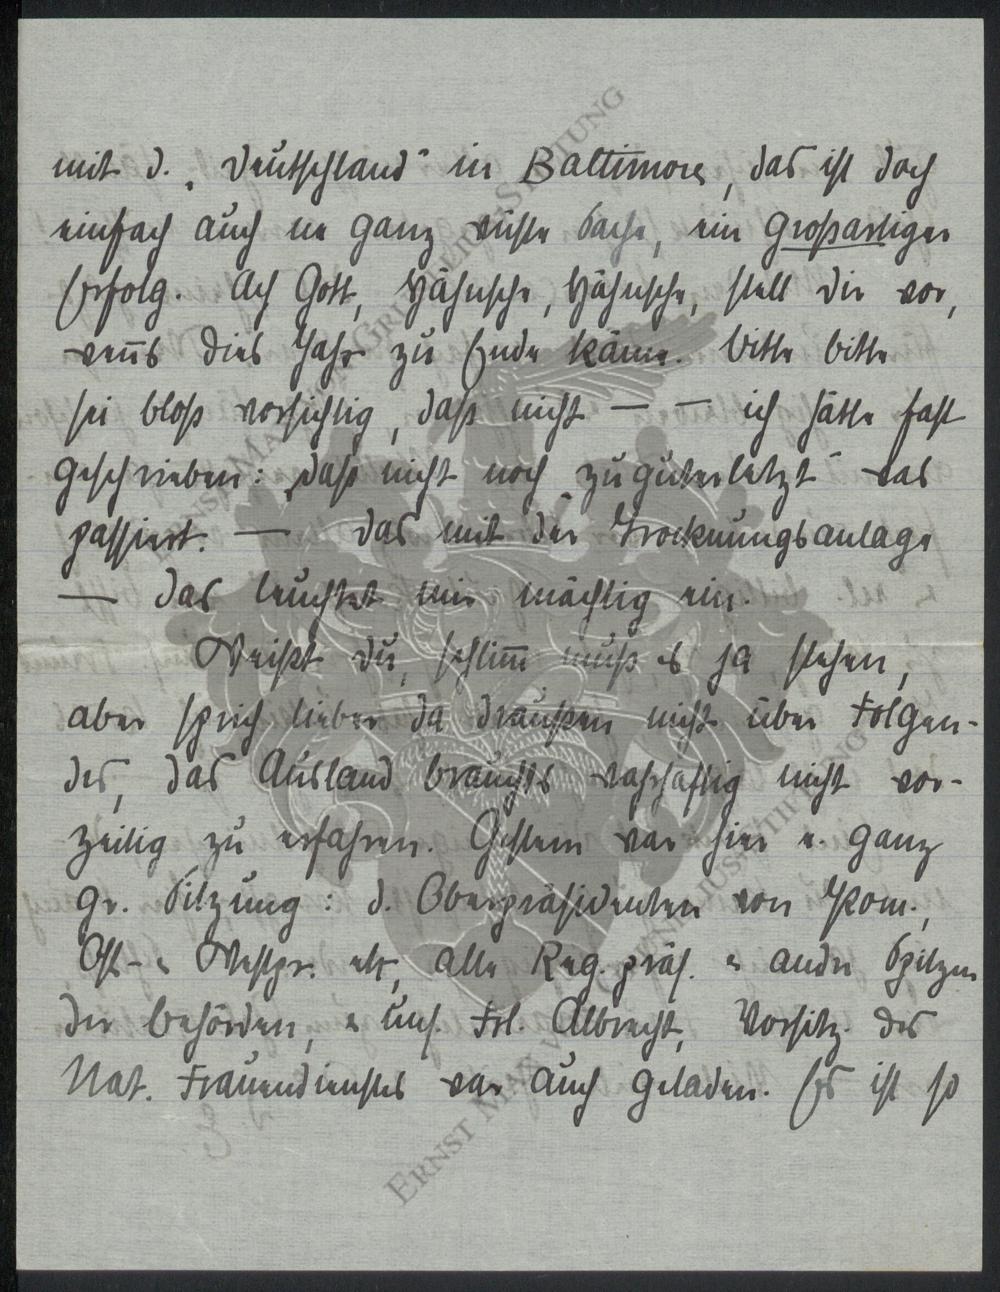 mit d. „Deutschland“ in Baltimore, das ist doch
einfach auch ne ganz wüste Sache, ein großartiger
Erfolg. Ach Gott, Hähnsche, Hähnsche, stell dir vor,
wenns dies Jahr zu Ende käme. Bitte bitte
sei bloß vorsichtig, daß nicht — — ich hätte fast
geschrieben: „daß nicht noch zuguterletzt“ was
passiert. — Das mit der Trocknungsanlage
— das leuchtet mir mächtig ein.
Weißt du, schlimm muß es ja stehen,
aber sprich lieber da draußen nicht über Folgen-
des, das Ausland brauchts wahrhaftig nicht vor-
zeitig zu erfahren. Gestern war hier e. ganz
gr. Sitzung: d. Oberpräsidenten von Pom.,
Ost- u. Westpr. etc, alle Reg. präs. u andre Spitzen
der Behörden, u uns. Frl. Albrecht, Vorsitz. des
Nat. Frauendienstes war auch geladen. Es ist so
ERNST MAX VON GRUNELIUS-STIFTUNG
ERNST MAX VON GRUNELIUS-STIFTUNG